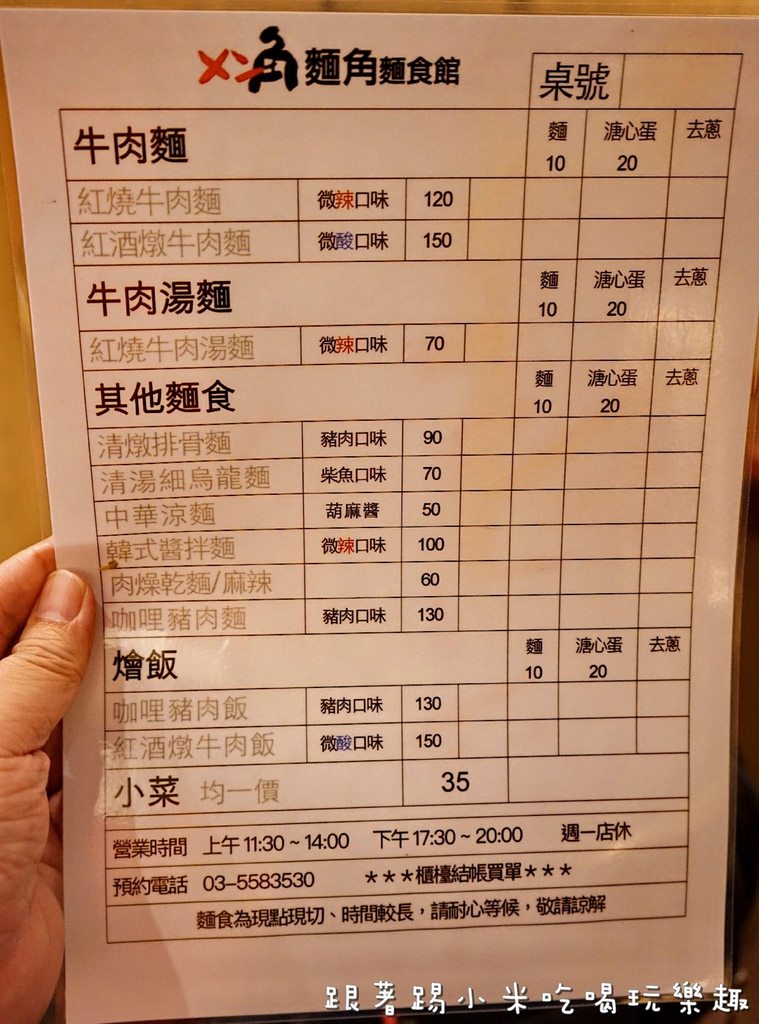 メン角 麵角麵食館 桌號
牛肉麵 麵 10 溏心蛋 20 去蔥
紅燒牛肉麵 微辣口味 120
紅酒燉牛肉麵 微酸口味 150
牛肉湯麵 麵 10 溏心蛋 20 去蔥
紅燒牛肉湯麵 微辣口味 70
其他麵食 麵 10 溏心蛋 20 去蔥
清燉排骨麵 豬肉口味 90
清湯細烏龍麵 柴魚口味 70
中華涼麵 葫麻醬 50
韓式醬拌麵 微辣口味 100
肉燥乾麵/麻辣 60
咖哩豬肉麵 豬肉口味 130
燴飯 麵 10 溏心蛋 20 去蔥
咖哩豬肉飯 豬肉口味 130
紅酒燉牛肉飯 微酸口味 150
小菜 均一價 35
營業時間 上午 11:30 ~ 14:00 下午 17:30 ~ 20:00 週一店休
預約電話 03-5583530 ***櫃檯結帳買單***
麵食為現點現切、時間較長，請耐心等候，敬請諒解
跟著踢小米吃喝玩樂趣